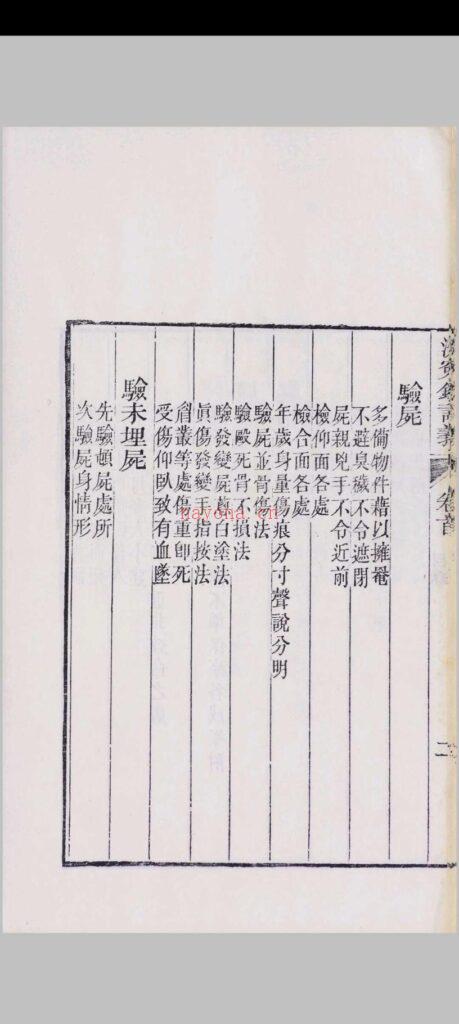 洗冤錄詳義 卷首 二
驗屍
多備物件藉以擁罨
不避臭穢不令遮閉
屍親兇手不令近前
檢仰面各處
檢合面各處
年歲身量傷痕分寸聲說分明
驗屍並骨傷法
驗毆死骨不損法
驗發變屍葱白塗法
眞傷發變玉指按法
叢等處傷重卽死
受傷仰臥致有血墜
驗未埋屍
先驗頓屍處所
次驗屍身情形
nayona.cn